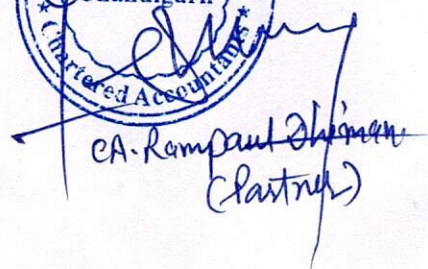 Chandigarh
★ Chartered Accountants ★
CA. Rampaul Dhiman
(Partner)